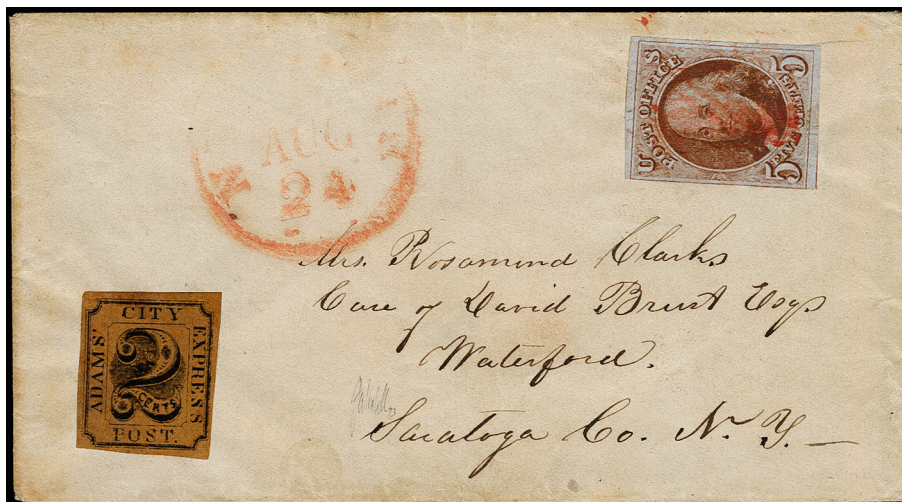 AUG
24
N Y
U S
POST OFFICE
5 5
FIVE CENTS
Mrs. Rosamind Clarks
Care of David Brust Esqs
Waterford.
Saratoga Co. N. Y.
ADAMS' CITY EXPRESS POST.
2
CENTS